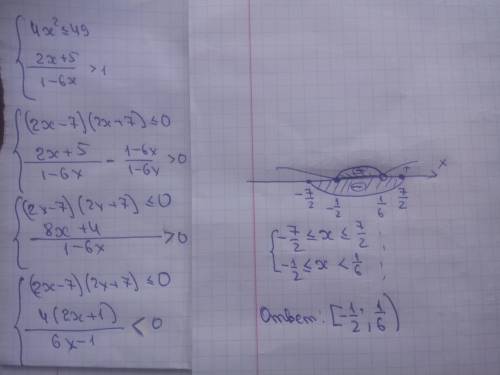 4x² ≤ 49
(2x+5)/(1-6x) > 1
(2x-7)(2x+7) ≤ 0
(2x+5)/(1-6x) - (1-6x)/(1-6x) > 0
(2x-7)(2x+7) ≤ 0
(8x+4)/(1-6x) > 0
(2x-7)(2x+7) ≤ 0
4(2x+1)/(6x-1) < 0
x
-7/2 -1/2 1/6 7/2
-7/2 ≤ x ≤ 7/2 ;
-1/2 ≤ x < 1/6 ;
Ответ: [-1/2; 1/6)